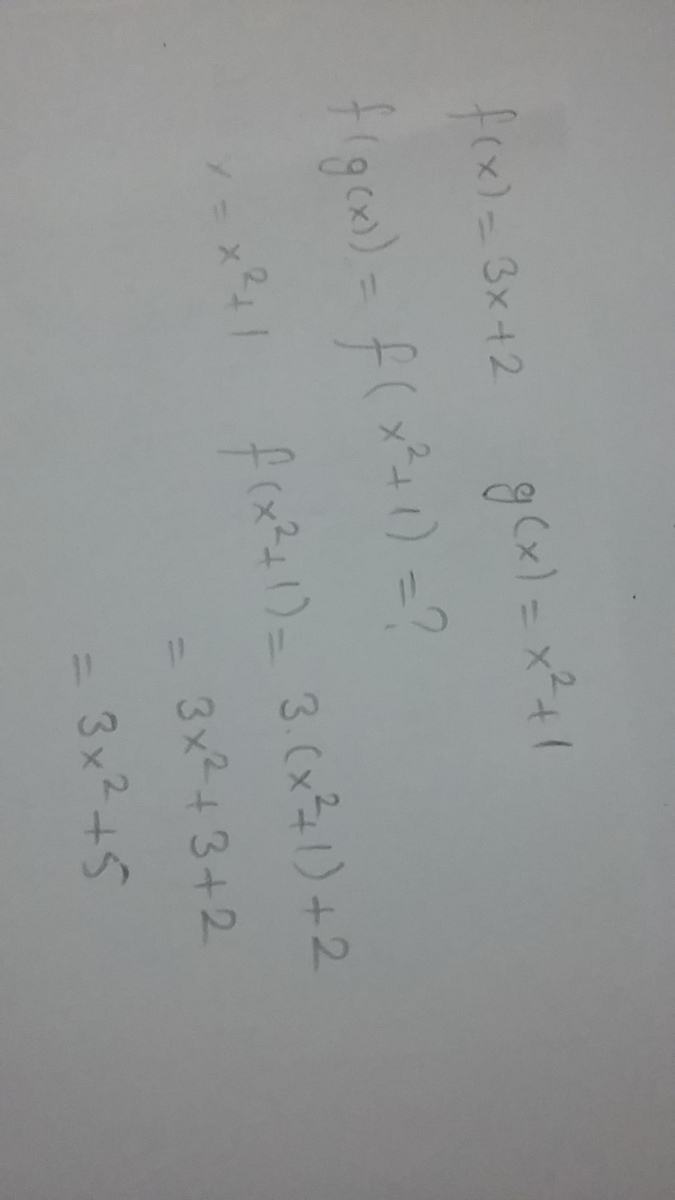 f(x) = 3x+2 g(x) = x²+1
f(g(x)) = f(x²+1) = ?
x = x²+1 f(x²+1) = 3.(x²+1)+2
= 3x²+3+2
= 3x²+5